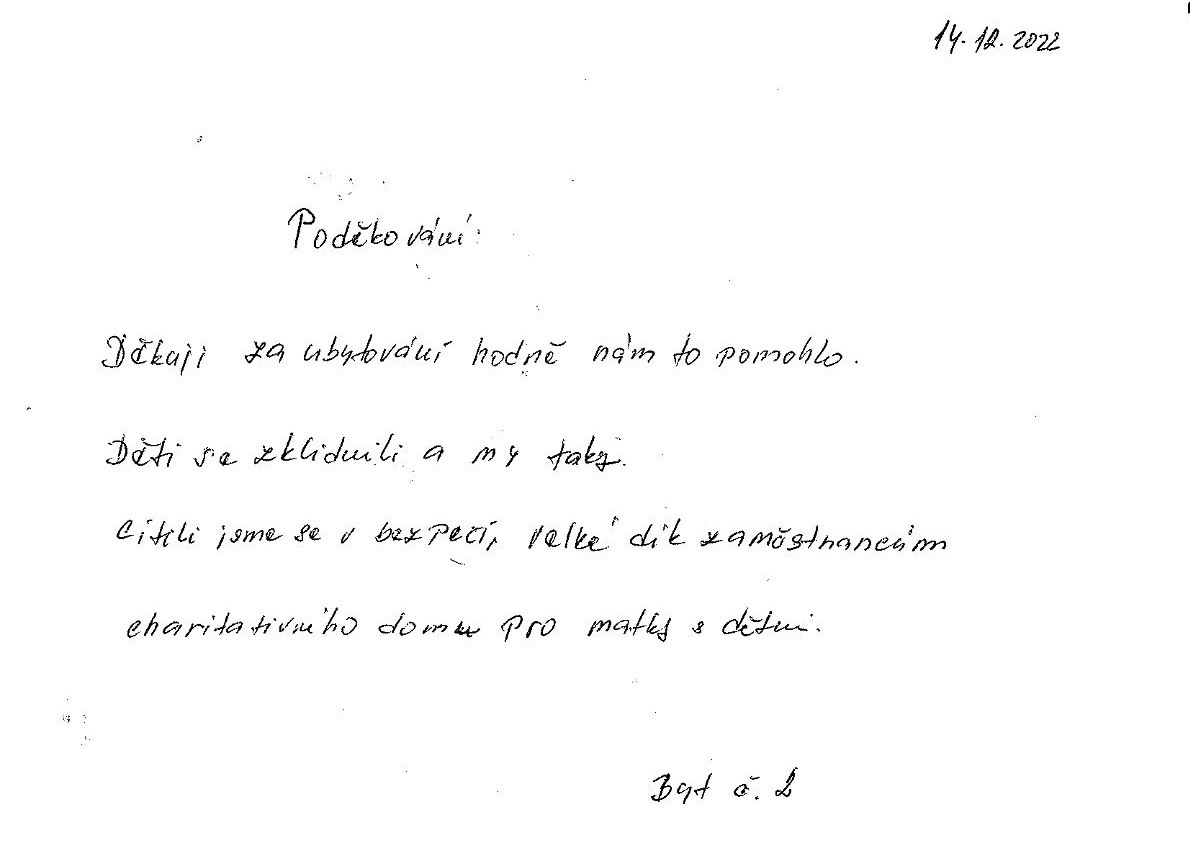 14. 12. 2022
Poděkování:
Děkuji za ubytování hodně nám to pomohlo.
Děti se zklidnili a my taky.
Cítili jsme se v bezpečí, velké dík zaměstnancům
charitativního domu pro matky s dětmi.
Byt č. 2